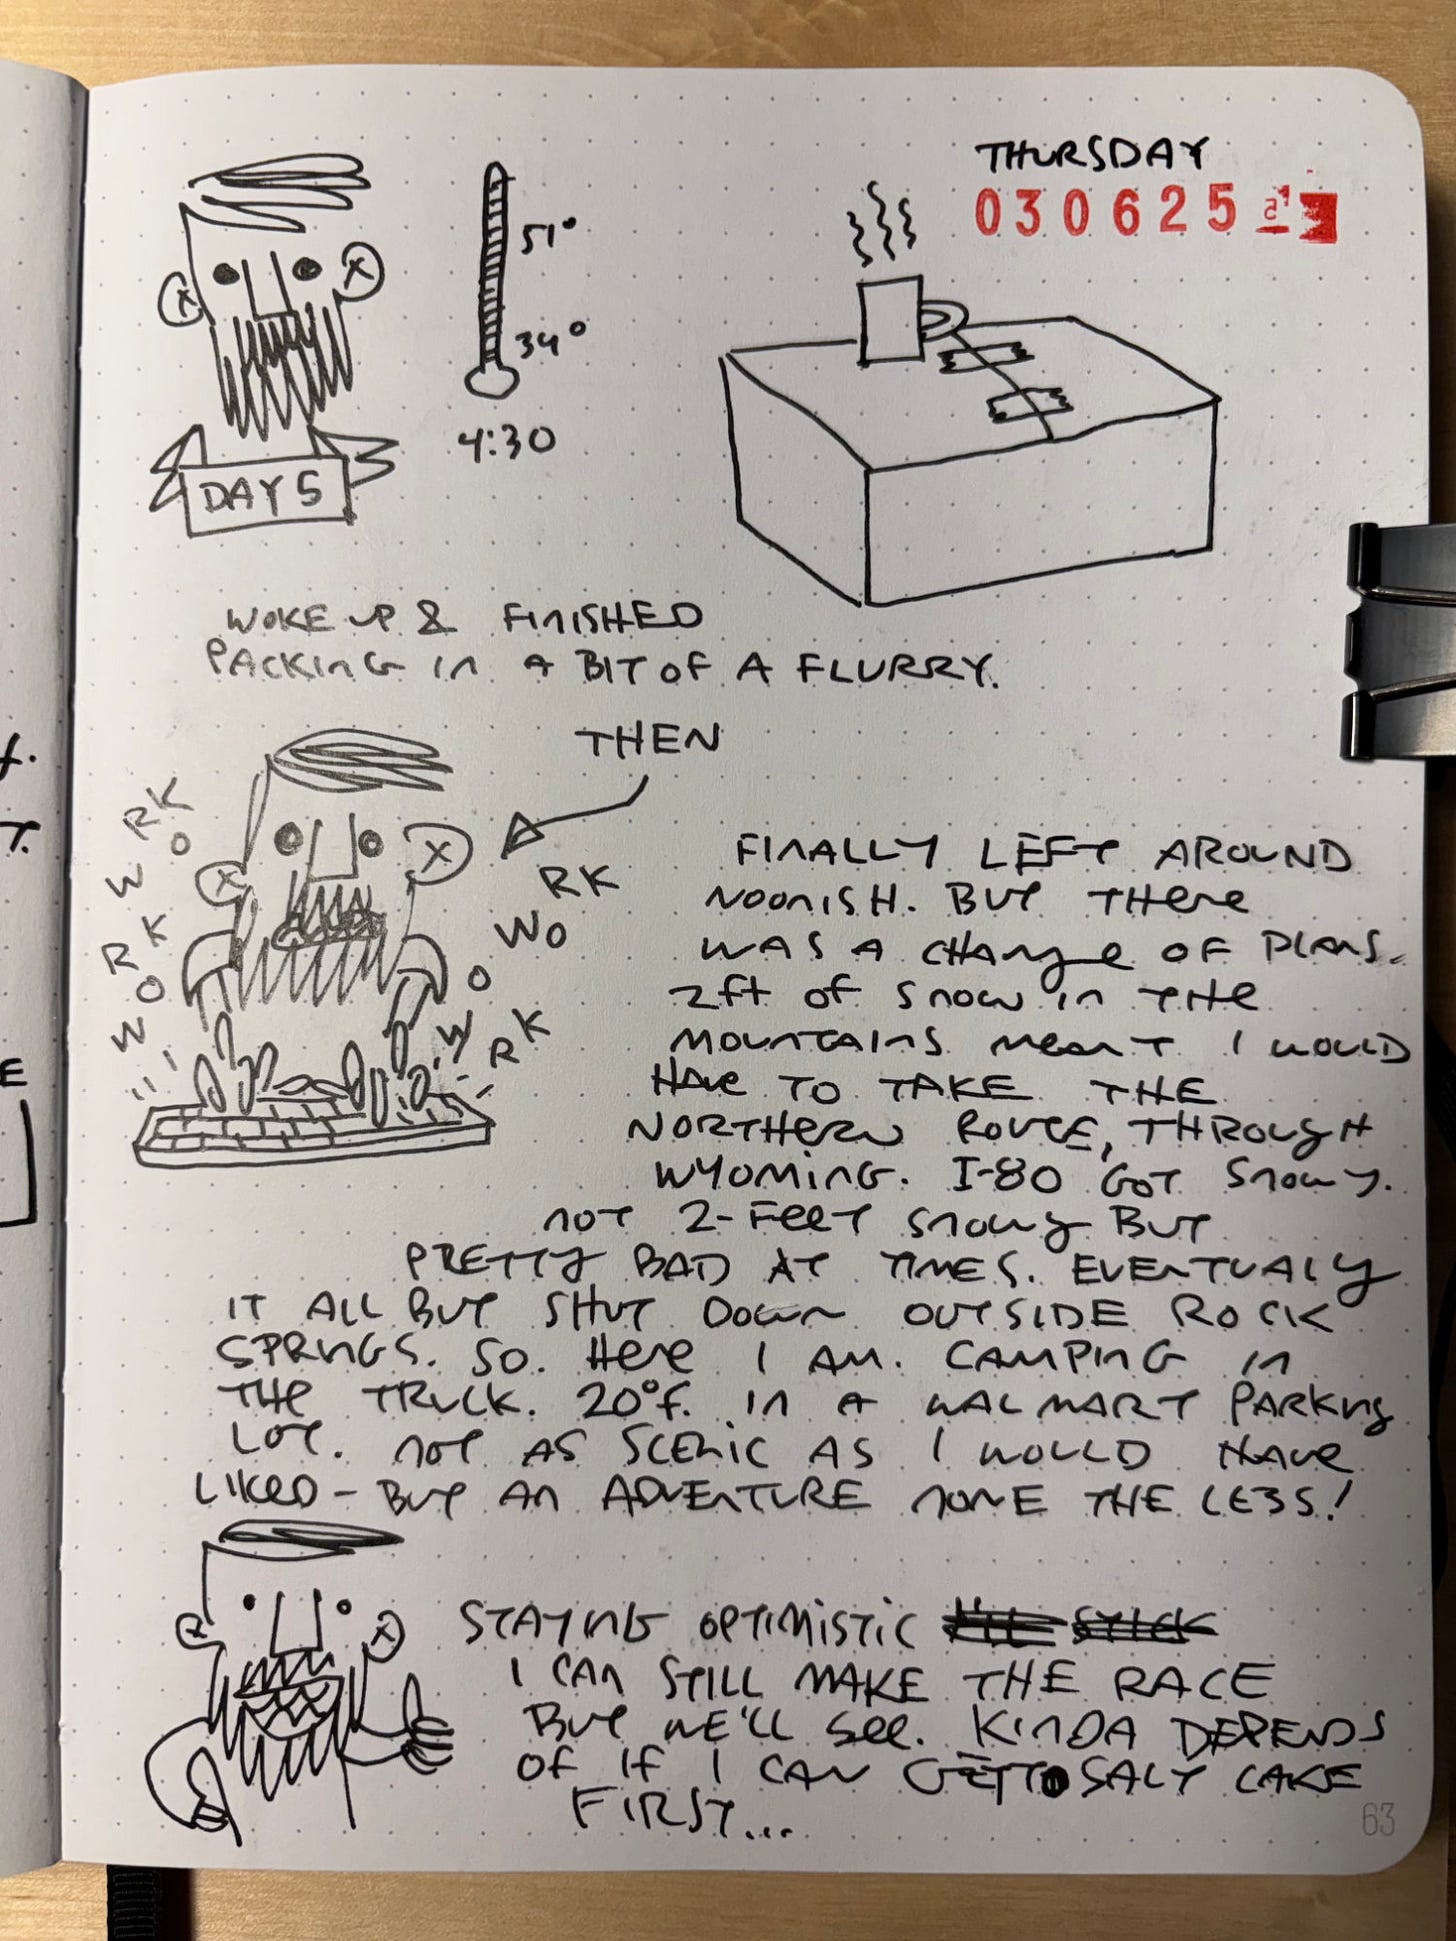 THURSDAY
030625
51°
34°
4:30
DAY 5
WOKE UP & FINISHED
PACKING IN A BIT OF A FLURRY.
THEN
WORK
WORK
WORK
WORK
FINALLY LEFT AROUND
NOONISH. BUT THERE
WAS A CHANGE OF PLANS.
2ft OF SNOW IN THE
MOUNTAINS MEANT I WOULD
HAVE TO TAKE THE
NORTHERN ROUTE, THROUGH
WYOMING. I-80 GOT SNOWY.
NOT 2-FEET SNOWY BUT
PRETTY BAD AT TIMES. EVENTUALY
IT ALL BUT SHUT DOWN OUTSIDE ROCK
SPRNGS. SO. HERE I AM. CAMPING IN
THE TRUCK. 20°f. IN A WALMART PARKING
LOT. NOT AS SCENIC AS I WOULD HAVE
LIKED - BUT AN ADVENTURE NONE THE LESS!
STAYING OPTIMISTIC
I CAN STILL MAKE THE RACE
BUT WE'LL SEE. KINDA DEPENDS
OF IF I CAN GET TO SALT LAKE
FIRST...
63